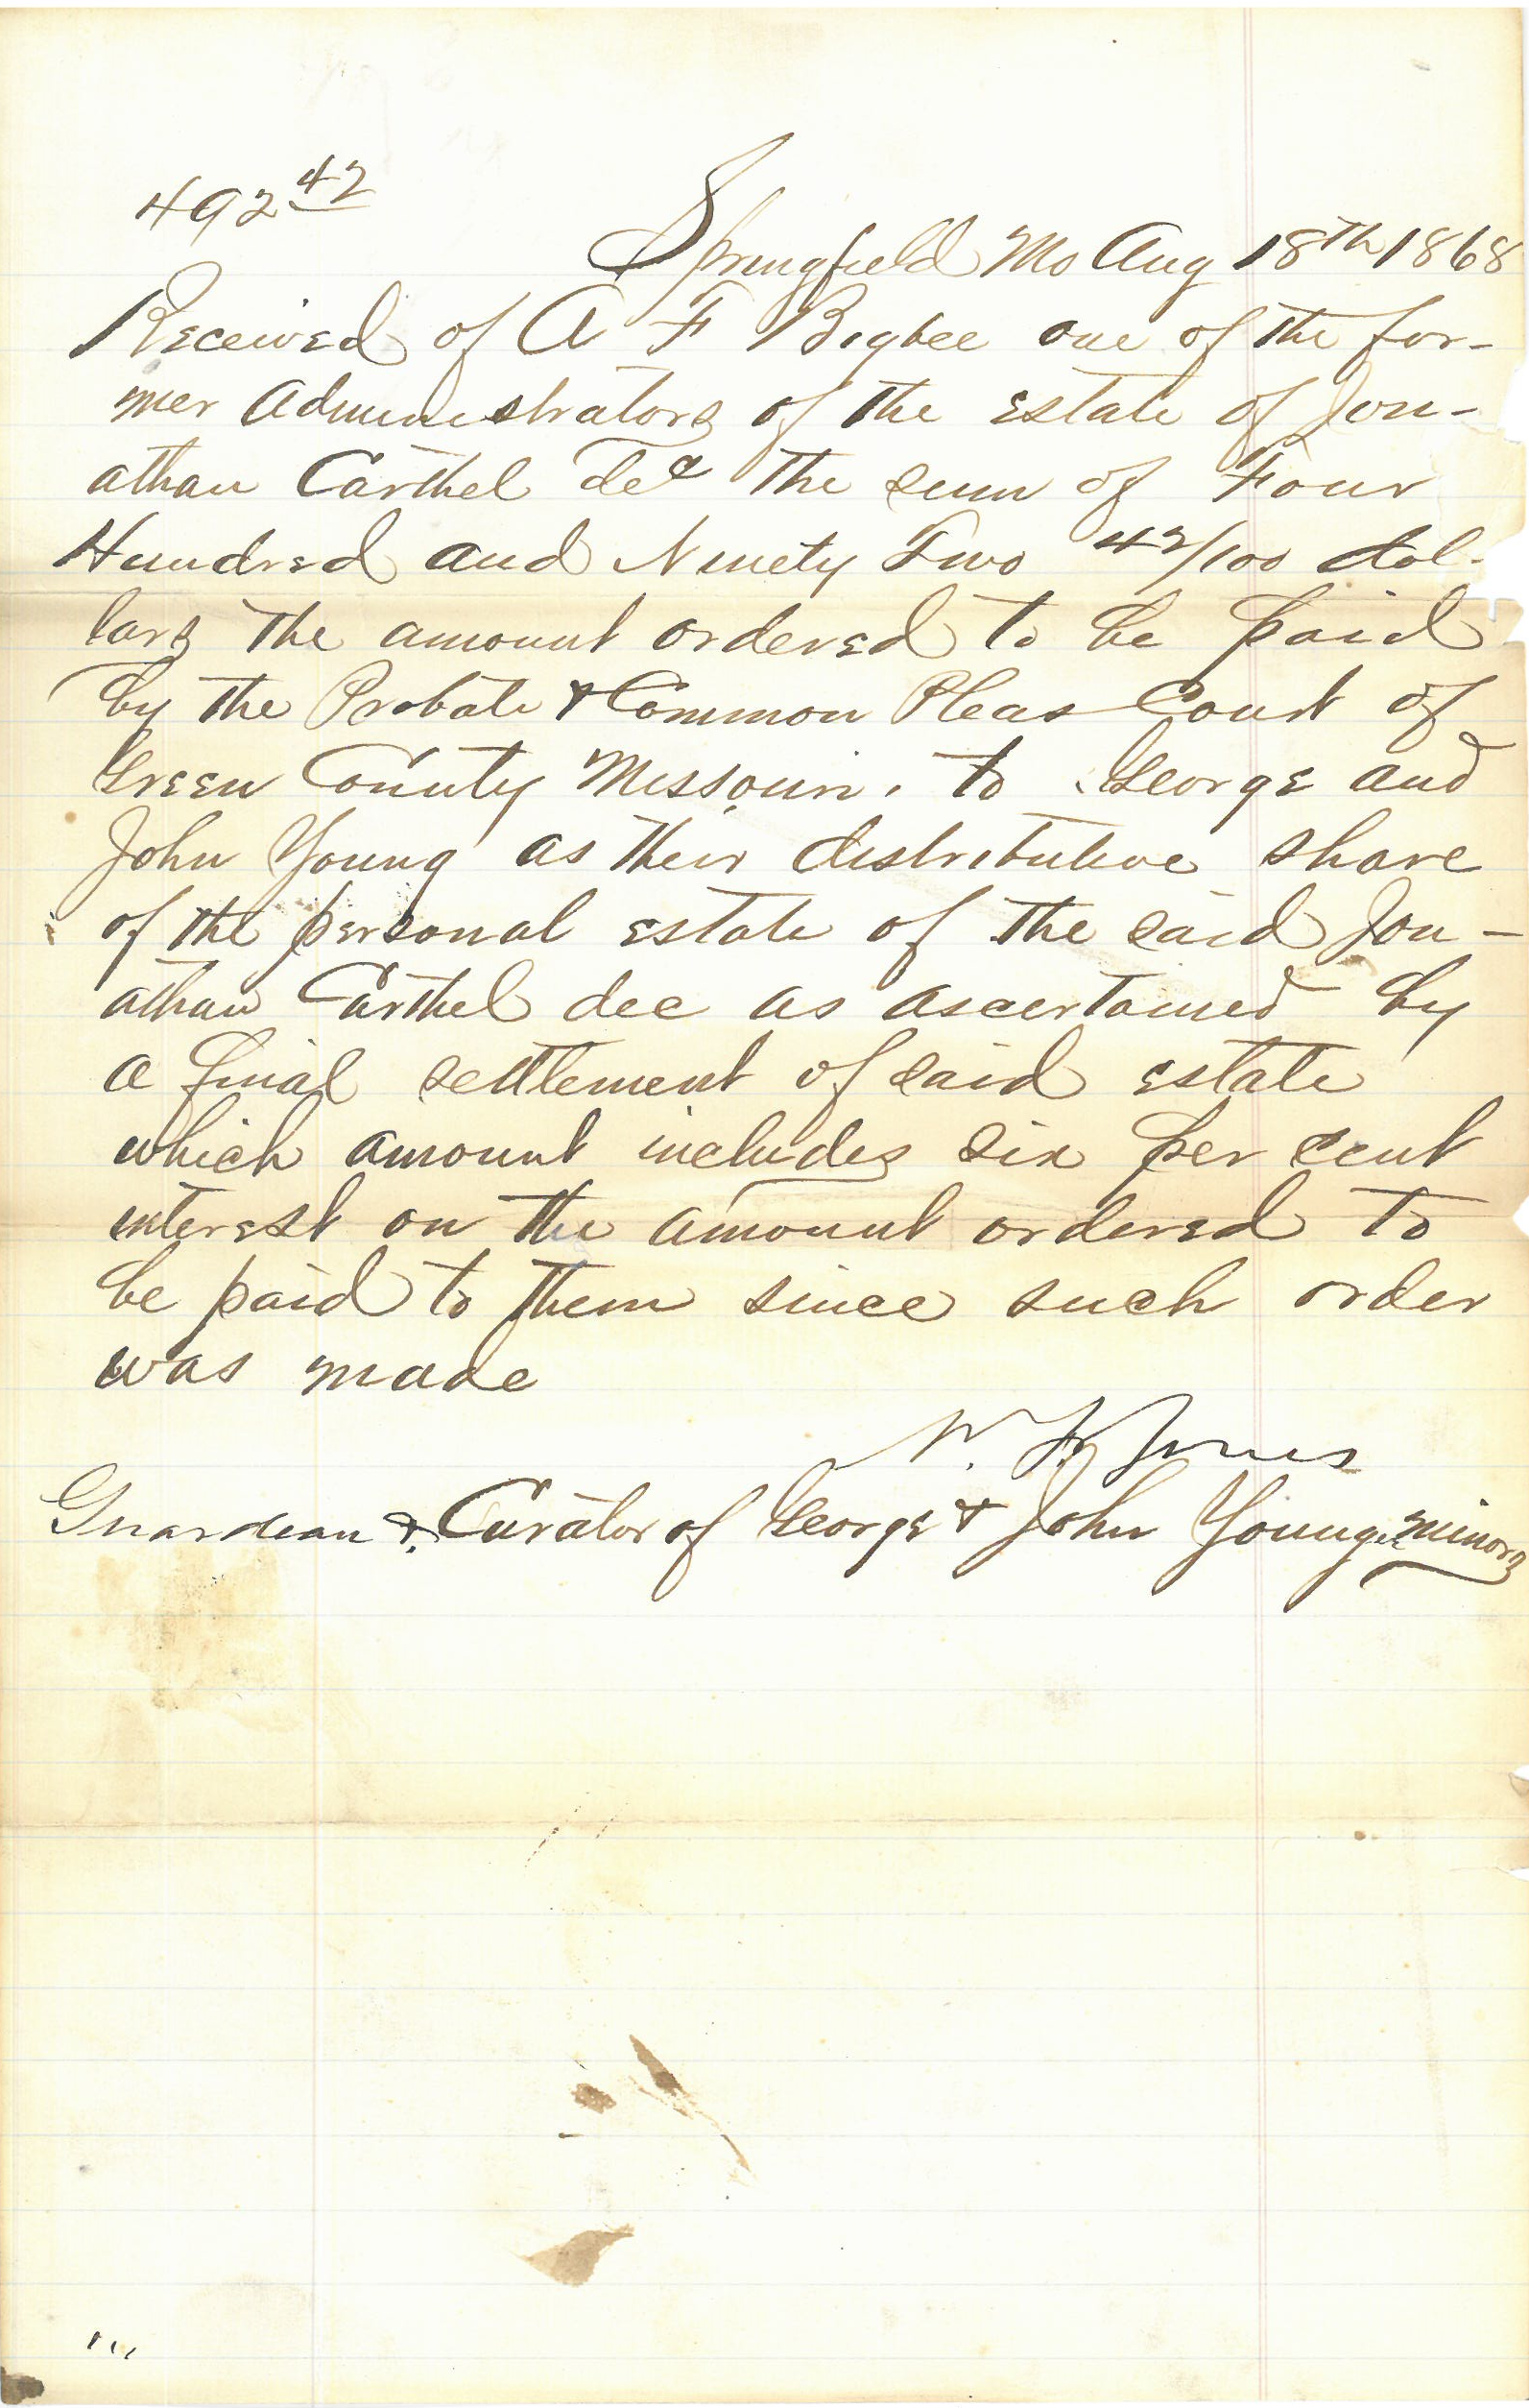 492 42
Springfield Mo Aug 18th 1868
Received of A F Bigbee one of the for-
mer Administrators of the estate of Jon-
athan Carthel decd the sum of Four
Hundred and Ninety Two 42/100 dol-
lars the amount ordered to be paid
by the Probate & Common Pleas Court of
Green County Missouri. to George and
John Young as their distributive share
of the personal estate of the said Jon-
athan Carthel dec as ascertained by
a final settlement of said estate
which amount includes six per cent
interest on the amount ordered to
be paid to them since such order
was made
Jones
Guardian & Curator of George & John Young minors